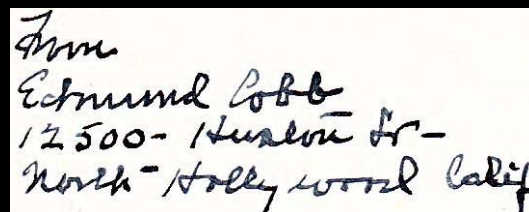 From
Edmund Cobb
12500- Huston St-
North- Hollywood Calif